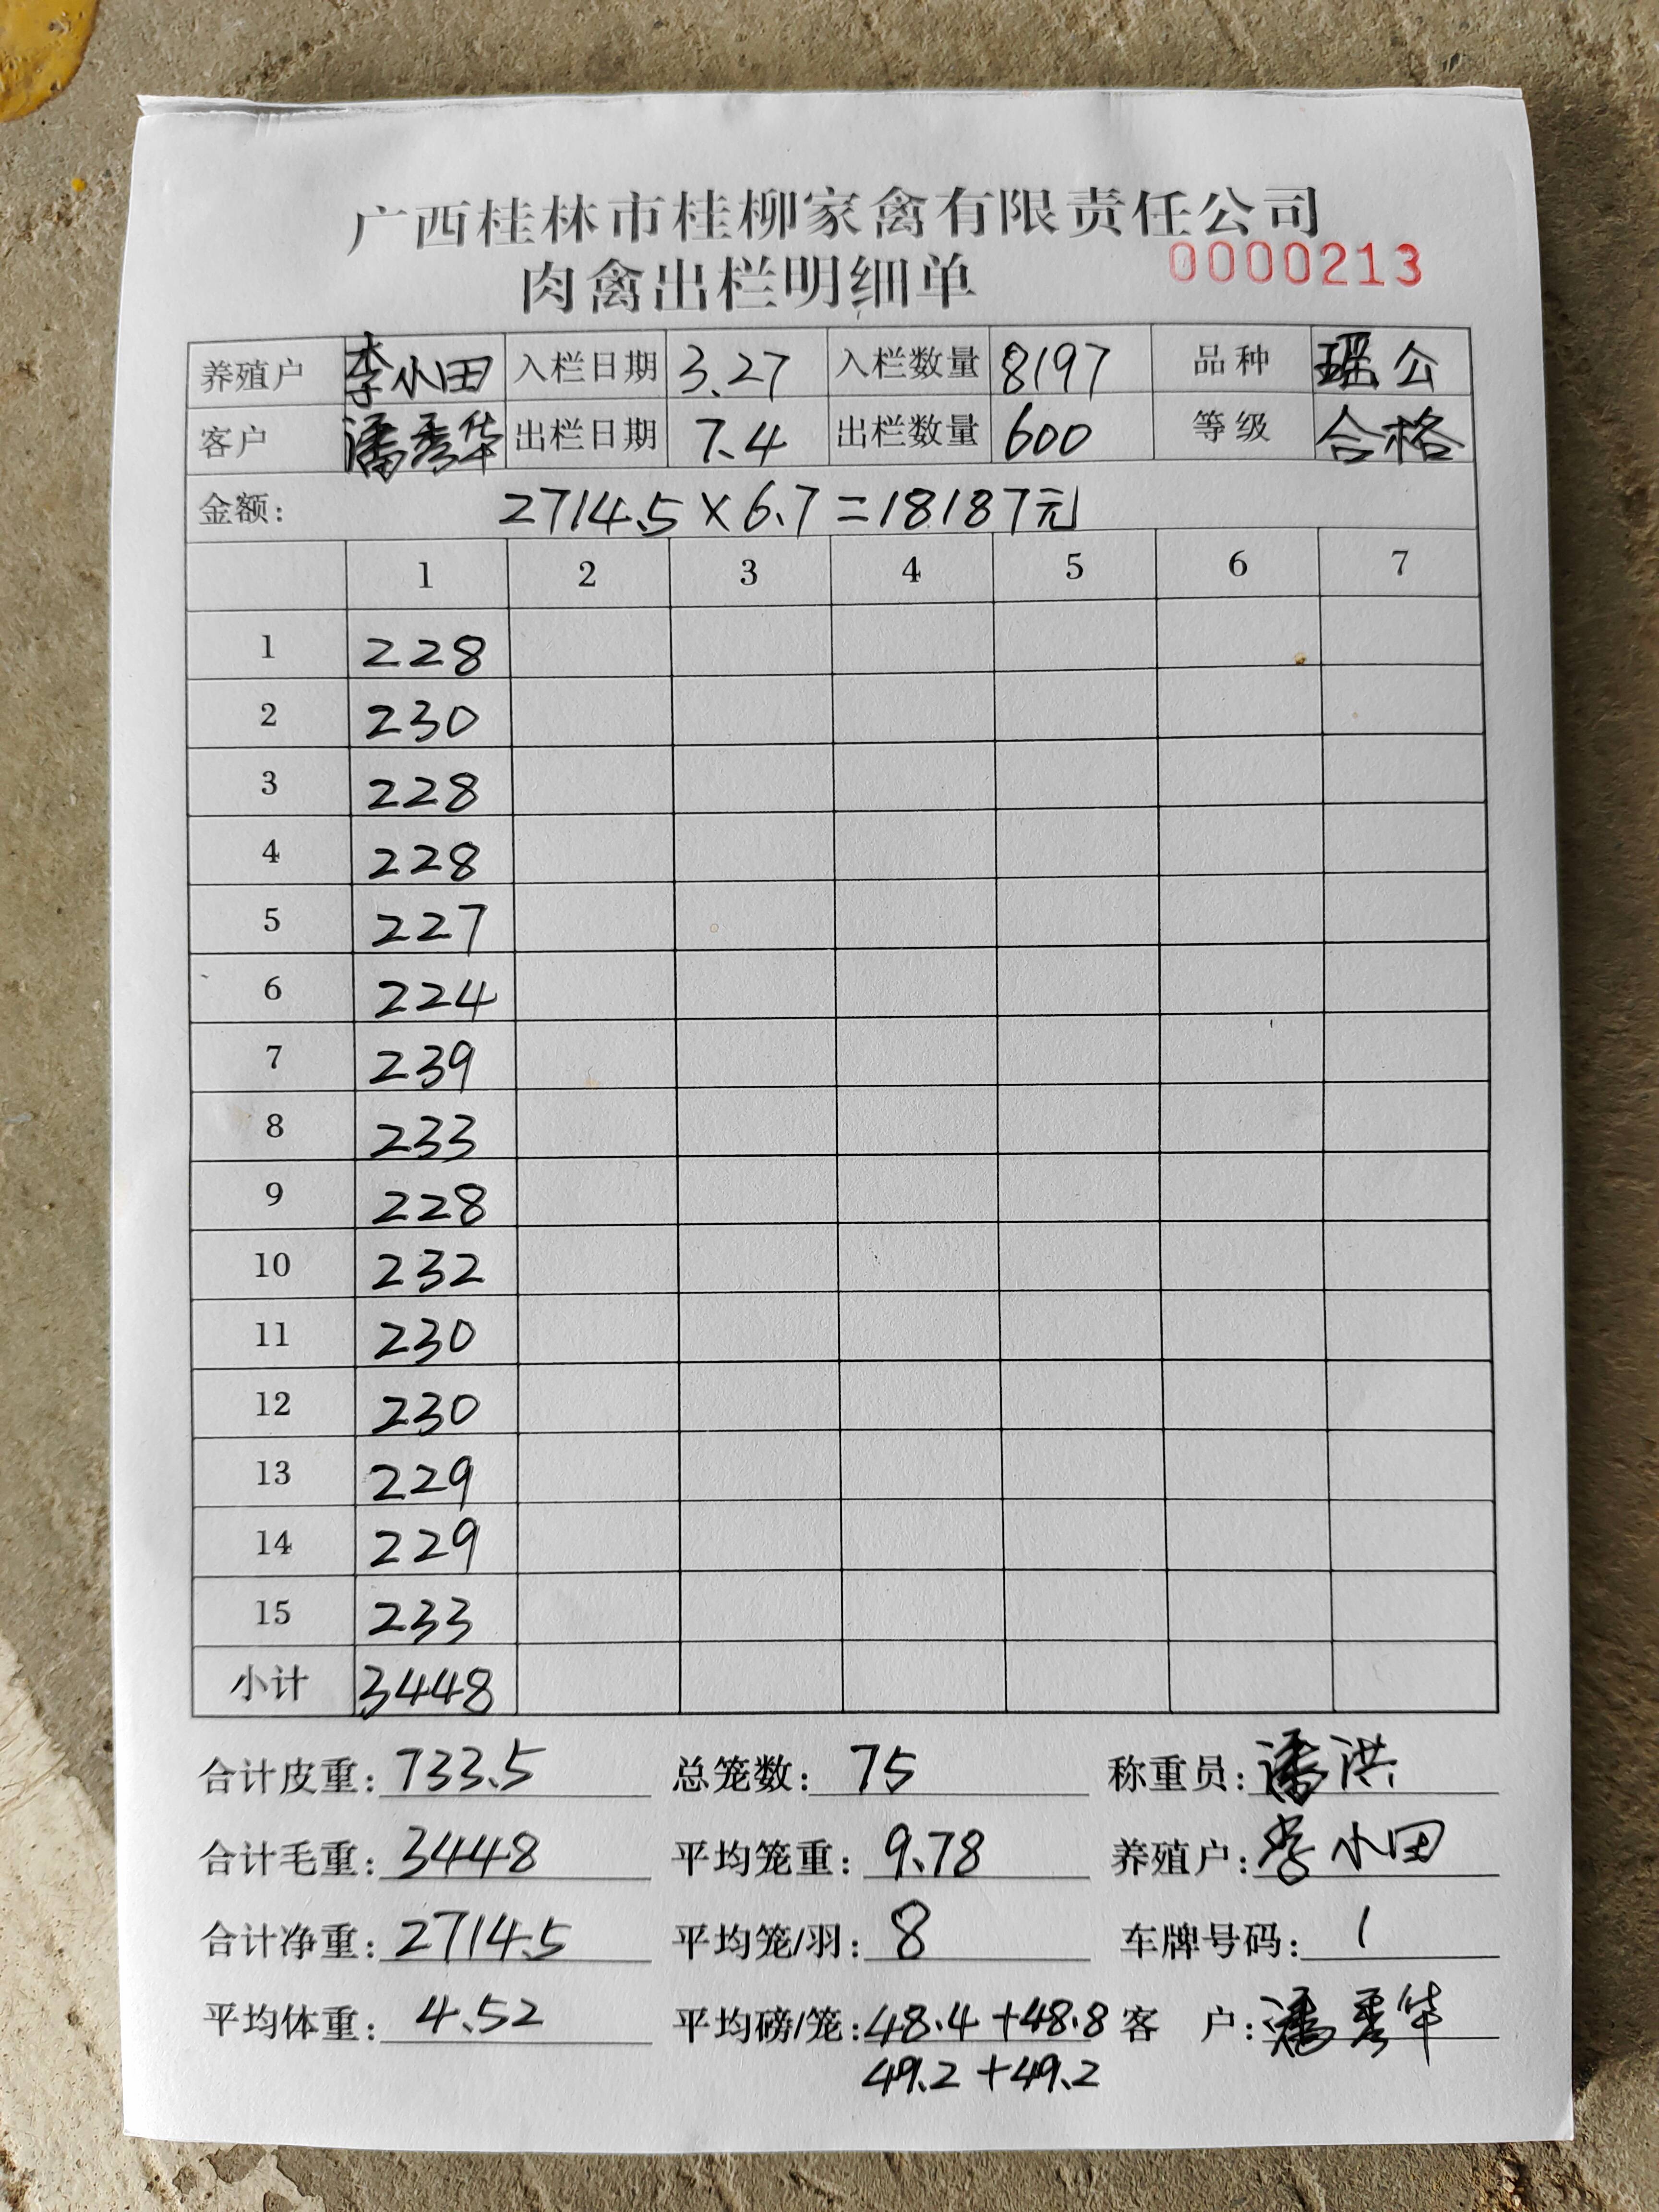 广西桂林市桂柳家禽有限责任公司
肉禽出栏明细单 0000213
养殖户 李小田 入栏日期 3.27 入栏数量 8197 品种 瑶公
客户 潘秀华 出栏日期 7.4 出栏数量 600 等级 合格
金额: 2714.5×6.7=18187元
1 2 3 4 5 6 7
1 228
2 230
3 228
4 228
5 227
6 224
7 239
8 233
9 228
10 232
11 230
12 230
13 229
14 229
15 233
小计 3448
合计皮重: 733.5 总笼数: 75 称重员: 潘洪
合计毛重: 3448 平均笼重: 9.78 养殖户: 李小田
合计净重: 2714.5 平均笼/羽: 8 车牌号码: 1
平均体重: 4.52 平均磅/笼: 48.4+48.8 客 户: 潘秀华
49.2+49.2